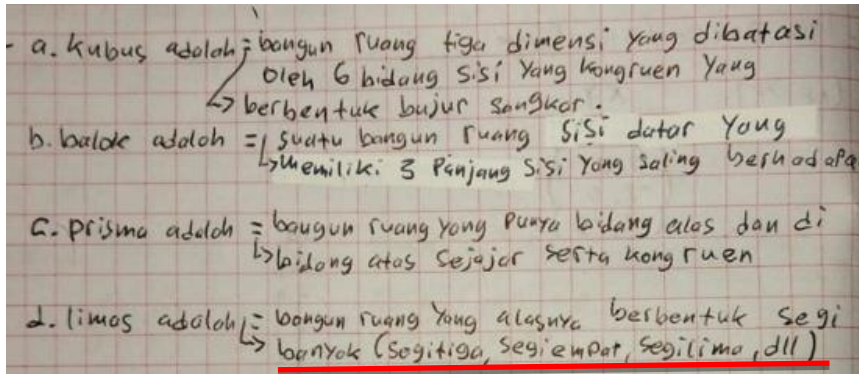 - a. Kubus adalah = bangun ruang tiga dimensi yang dibatasi
oleh 6 bidang sisi yang kongruen yang
↳ berbentuk bujur sangkar.
b. balok adalah = suatu bangun ruang sisi datar yang
↳ memiliki 3 panjang sisi yang saling berhadapa
c. prisma adalah = bangun ruang yang punya bidang alas dan di
↳ bidang atas sejajar serta kongruen
d. limas adalah = bangun ruang yang alasnya berbentuk segi
↳ banyak (segitiga, segiempat, segilima, dll)